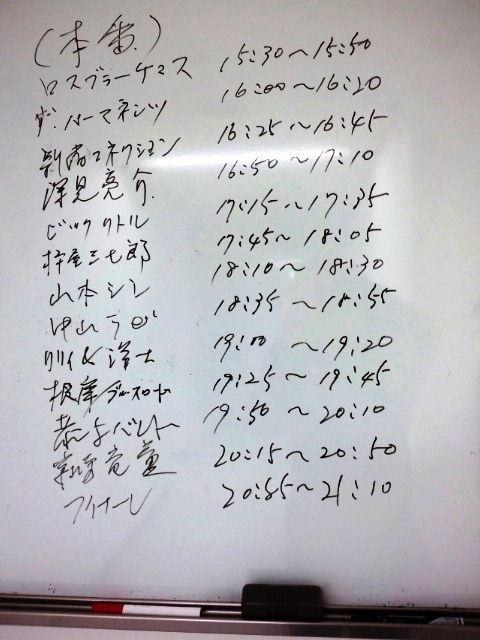 (本番)
ロスブラーケロス 15:30〜15:50
ザ・パーマネンツ 16:00〜16:20
新宿コネクション 16:25〜16:45
深見亮介 16:50〜17:10
ビックリトル 17:15〜17:35
杵屋三七郎 17:45〜18:05
山本シン 18:10〜18:30
中山ラビ 18:35〜18:55
リリィ&洋士 19:00〜19:20
根岸 19:25〜19:45
19:50〜20:10
20:15〜20:50
フィナーレ 20:55〜21:10